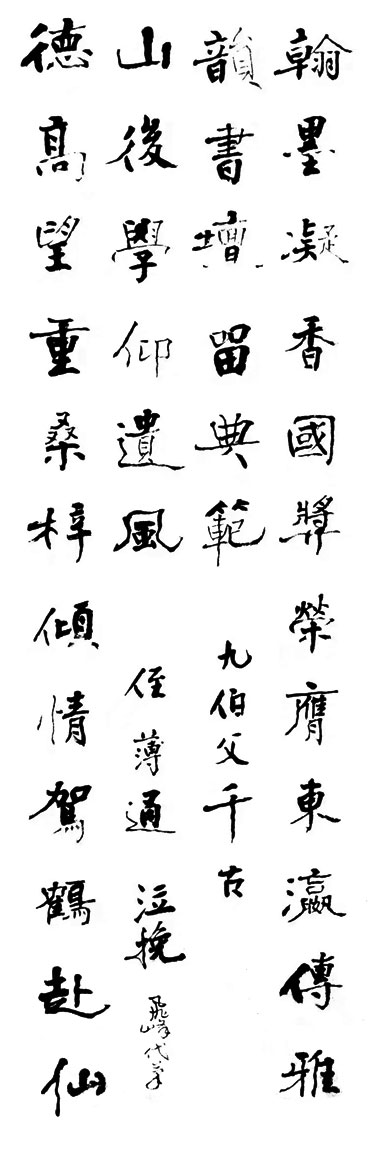 翰墨凝香國獎榮膺東瀛傳雅
韻書壇留典範
九伯父千古
德高望重桑梓傾情駕鶴赴仙
山後學仰遺風
侄薄通泣挽
飛峰代